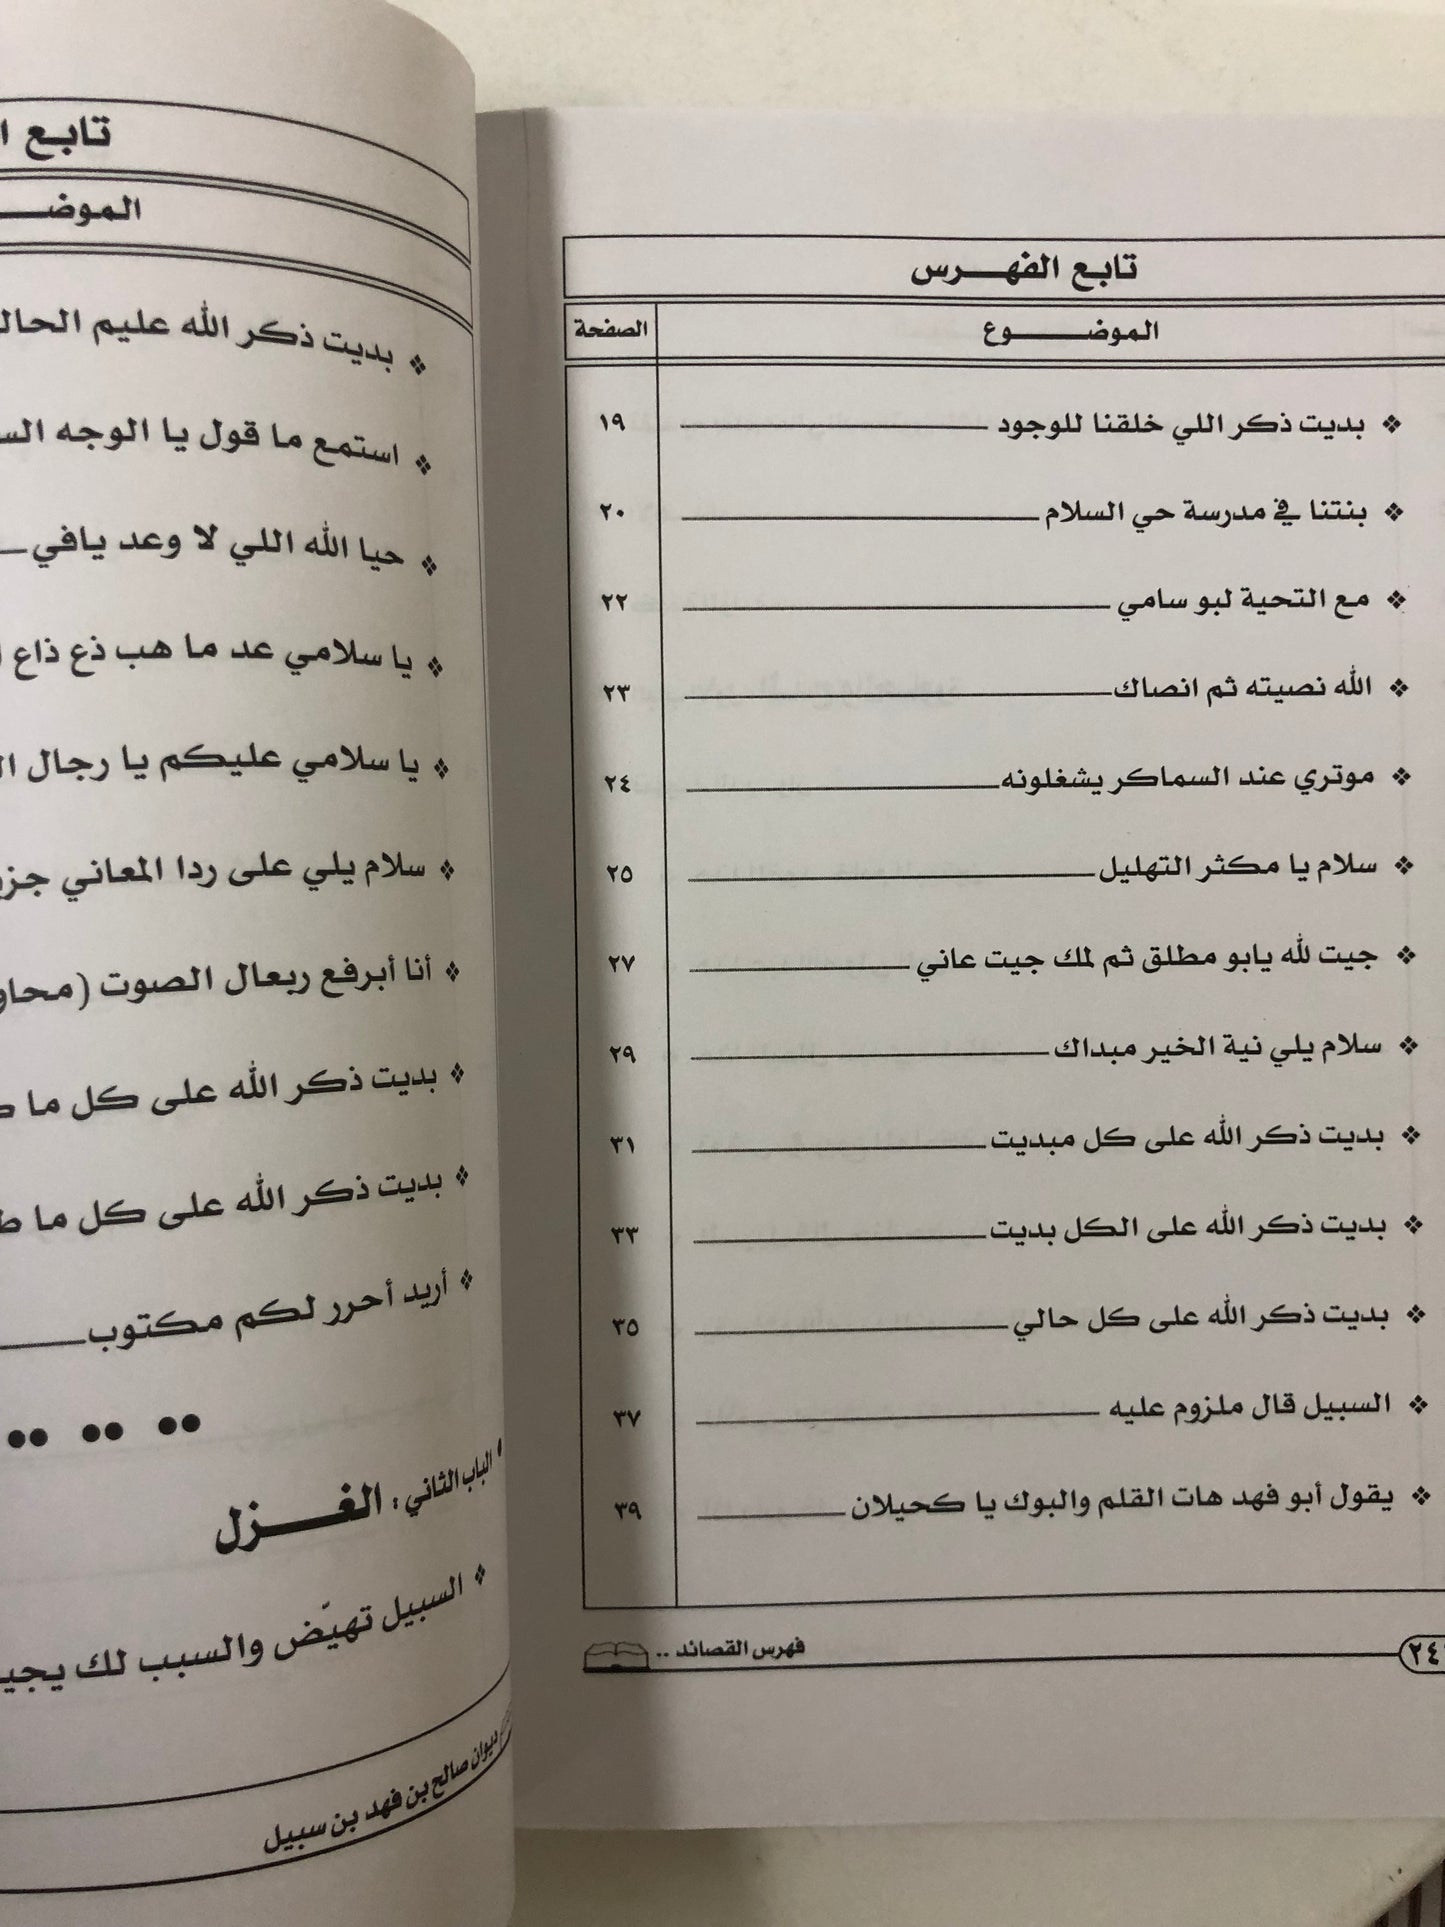 تابع الفهرس
الموضوع الصفحة
بديت ذكر اللي خلقنا للوجود ١٩
بنتنا في مدرسة حي السلام ٢٠
مع التحية لبو سامي ٢٢
الله نصيته ثم انصاك ٢٣
موتري عند السماكر يشغلونه ٢٤
سلام يا مكثر التهليل ٢٥
جيت لله يابو مطلق ثم لمك جيت عاني ٢٧
سلام يلي نية الخير مبداك ٢٩
بديت ذكر الله على كل مبديت ٣١
بديت ذكر الله على الكل بديت ٣٣
بديت ذكر الله على كل حالي ٣٥
السبيل قال ملزوم عليه ٣٧
يقول أبو فهد هات القلم والبوك يا كحيلان ٣٩
فهرس القصائد ..
تابع
بديت ذكر الله عليم
استمع ما قول يا الوجه
حيا الله اللي لا وعد يافي
يا سلامي عد ما هب ذع ذاع
يا سلامي عليكم يا رجال
سلام يلي على ردا المعاني
أنا أبرفع ربعال الصوت
بديت ذكر الله على كل ما
بديت ذكر الله على كل ما
أريد أحرر لكم مكتوب
الباب الثاني : الغزل
السبيل تهيّض والسبب لك
ديوان صالح بن فهد بن سبيل